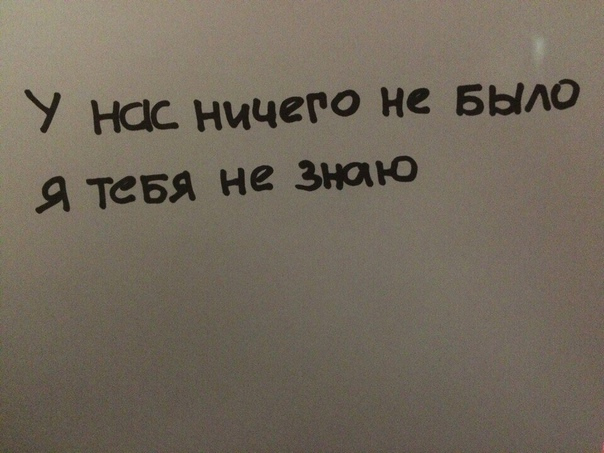 У нас ничего не было
Я тебя не знаю